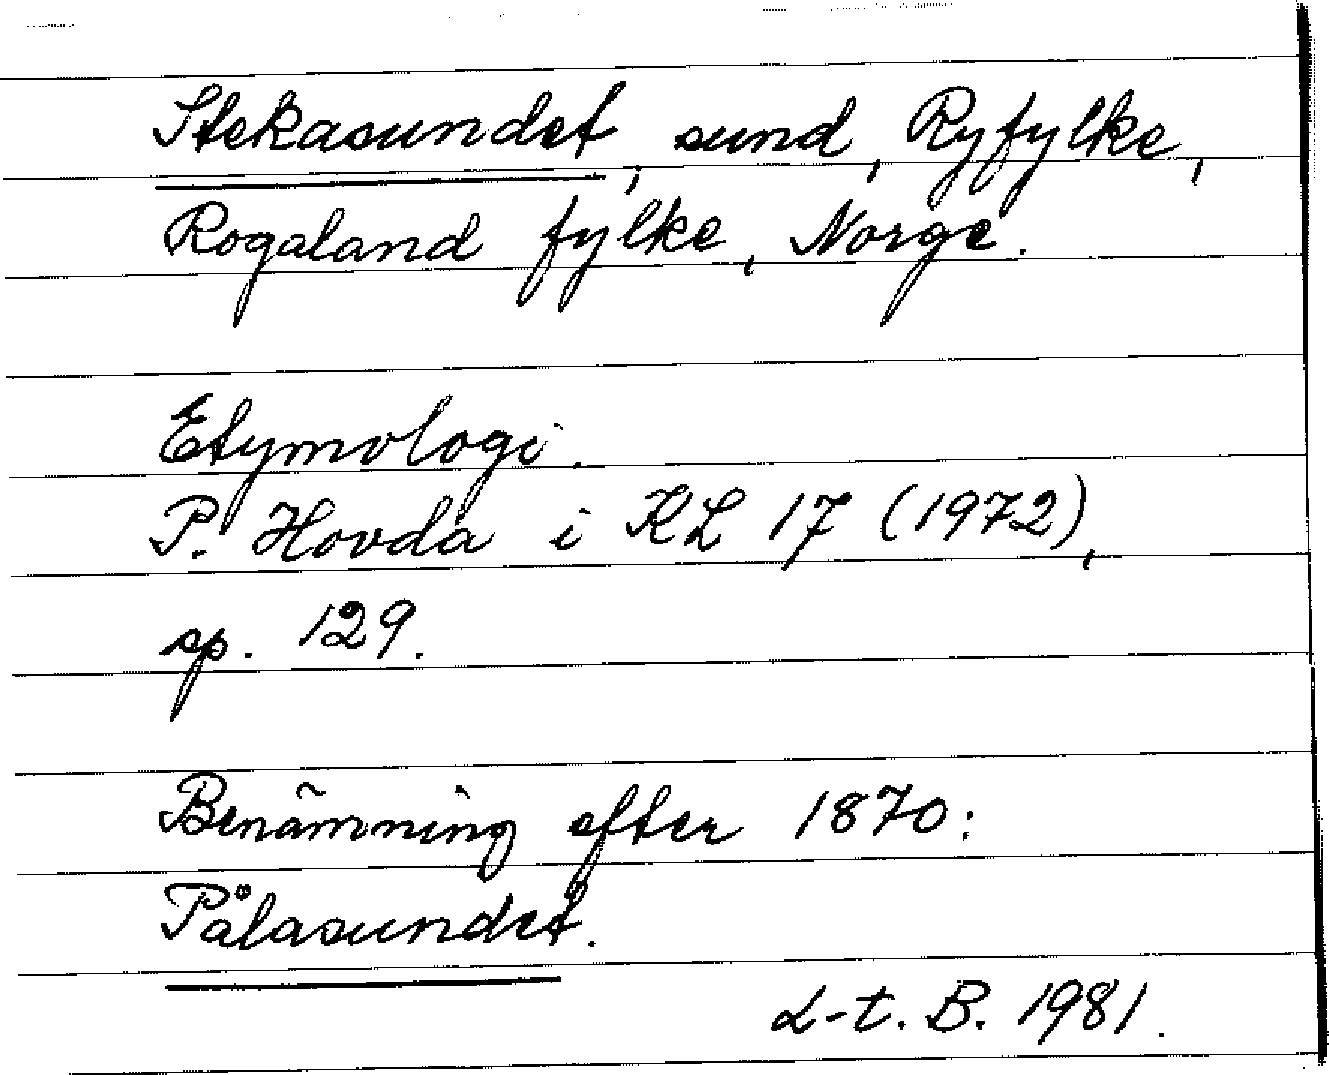 Stekasundet, sund, Ryfylke,
Rogaland fylke, Norge.
Etymologi.
P. Hovda i KL 17 (1972),
sp. 129.
Benämning efter 1870:
Pålasundet.
L-t. B. 1981.